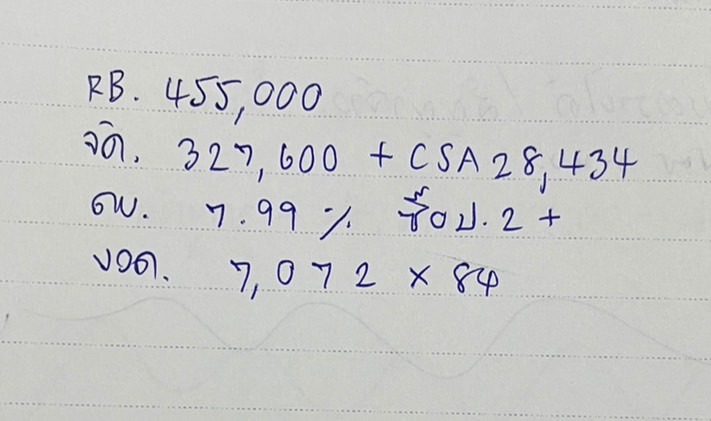 RB. 455,000
จัด. 327,600 + CSA 28,434
ดบ. 7.99 % ซื้อ ป. 2 +
งวด. 7,072 × 84